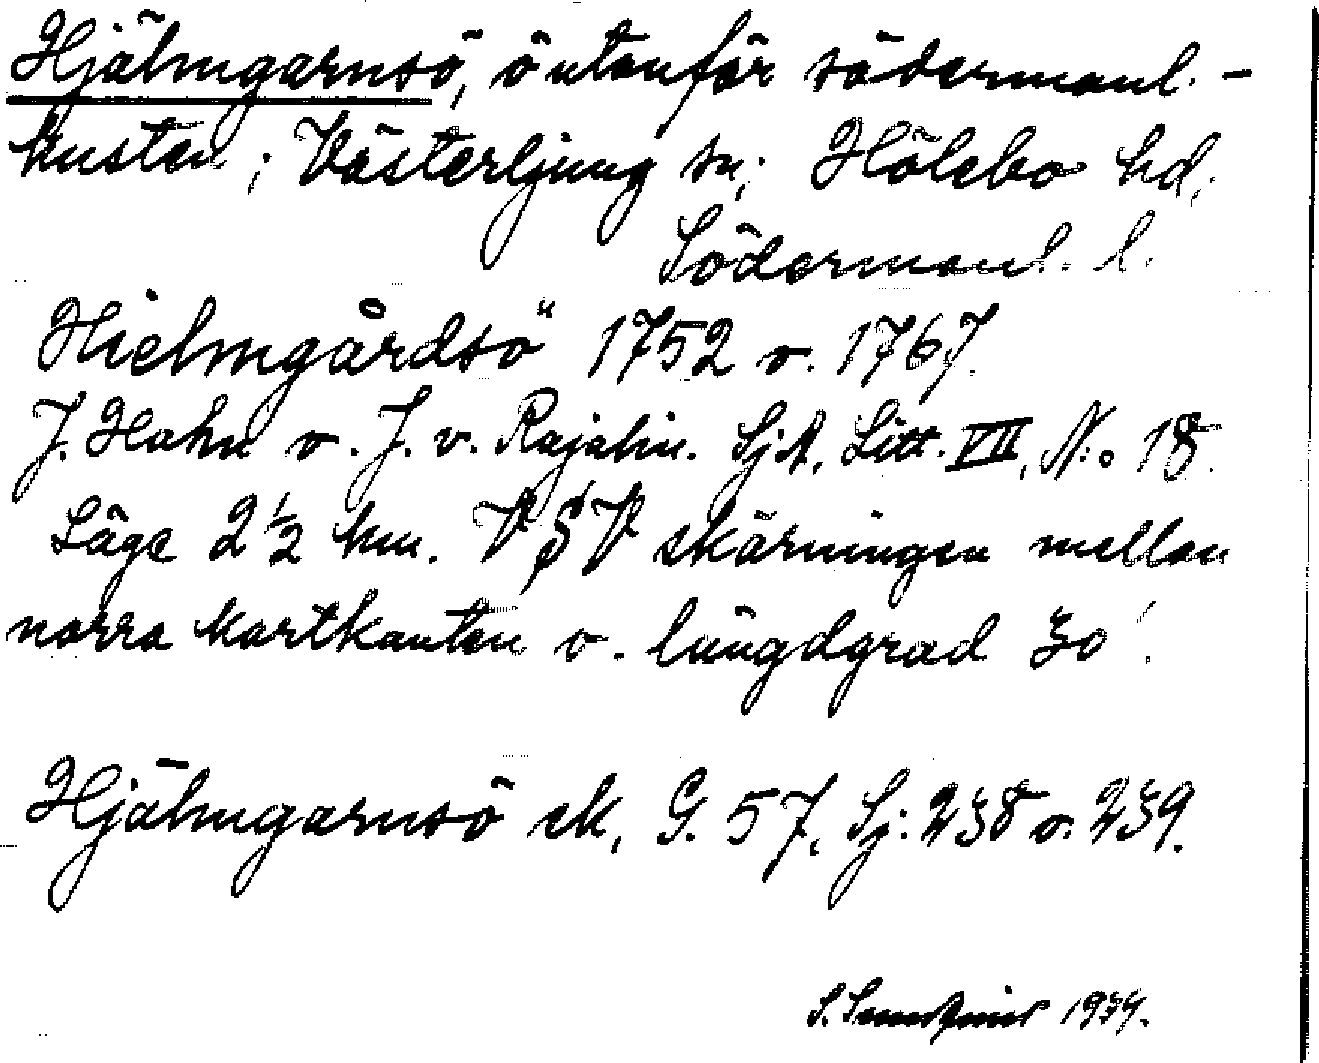 Hjälmgarnsö, ö utanför södermanl.-
kusten; Västerljung sn; Hölebo hd.
Södermanl. l.
Hielmgårdsö 1752 o. 1767.
J. Hahn o. J. v. Rajalin. SjA. Litt. VIII, No 18.
Läge 2 1/2 km. V S V skärningen mellan
norra kartkanten o. längdgrad 30'.
Hjälmgarnsö ek, G. 57. Sj: 238 o. 239.
S. 1934.